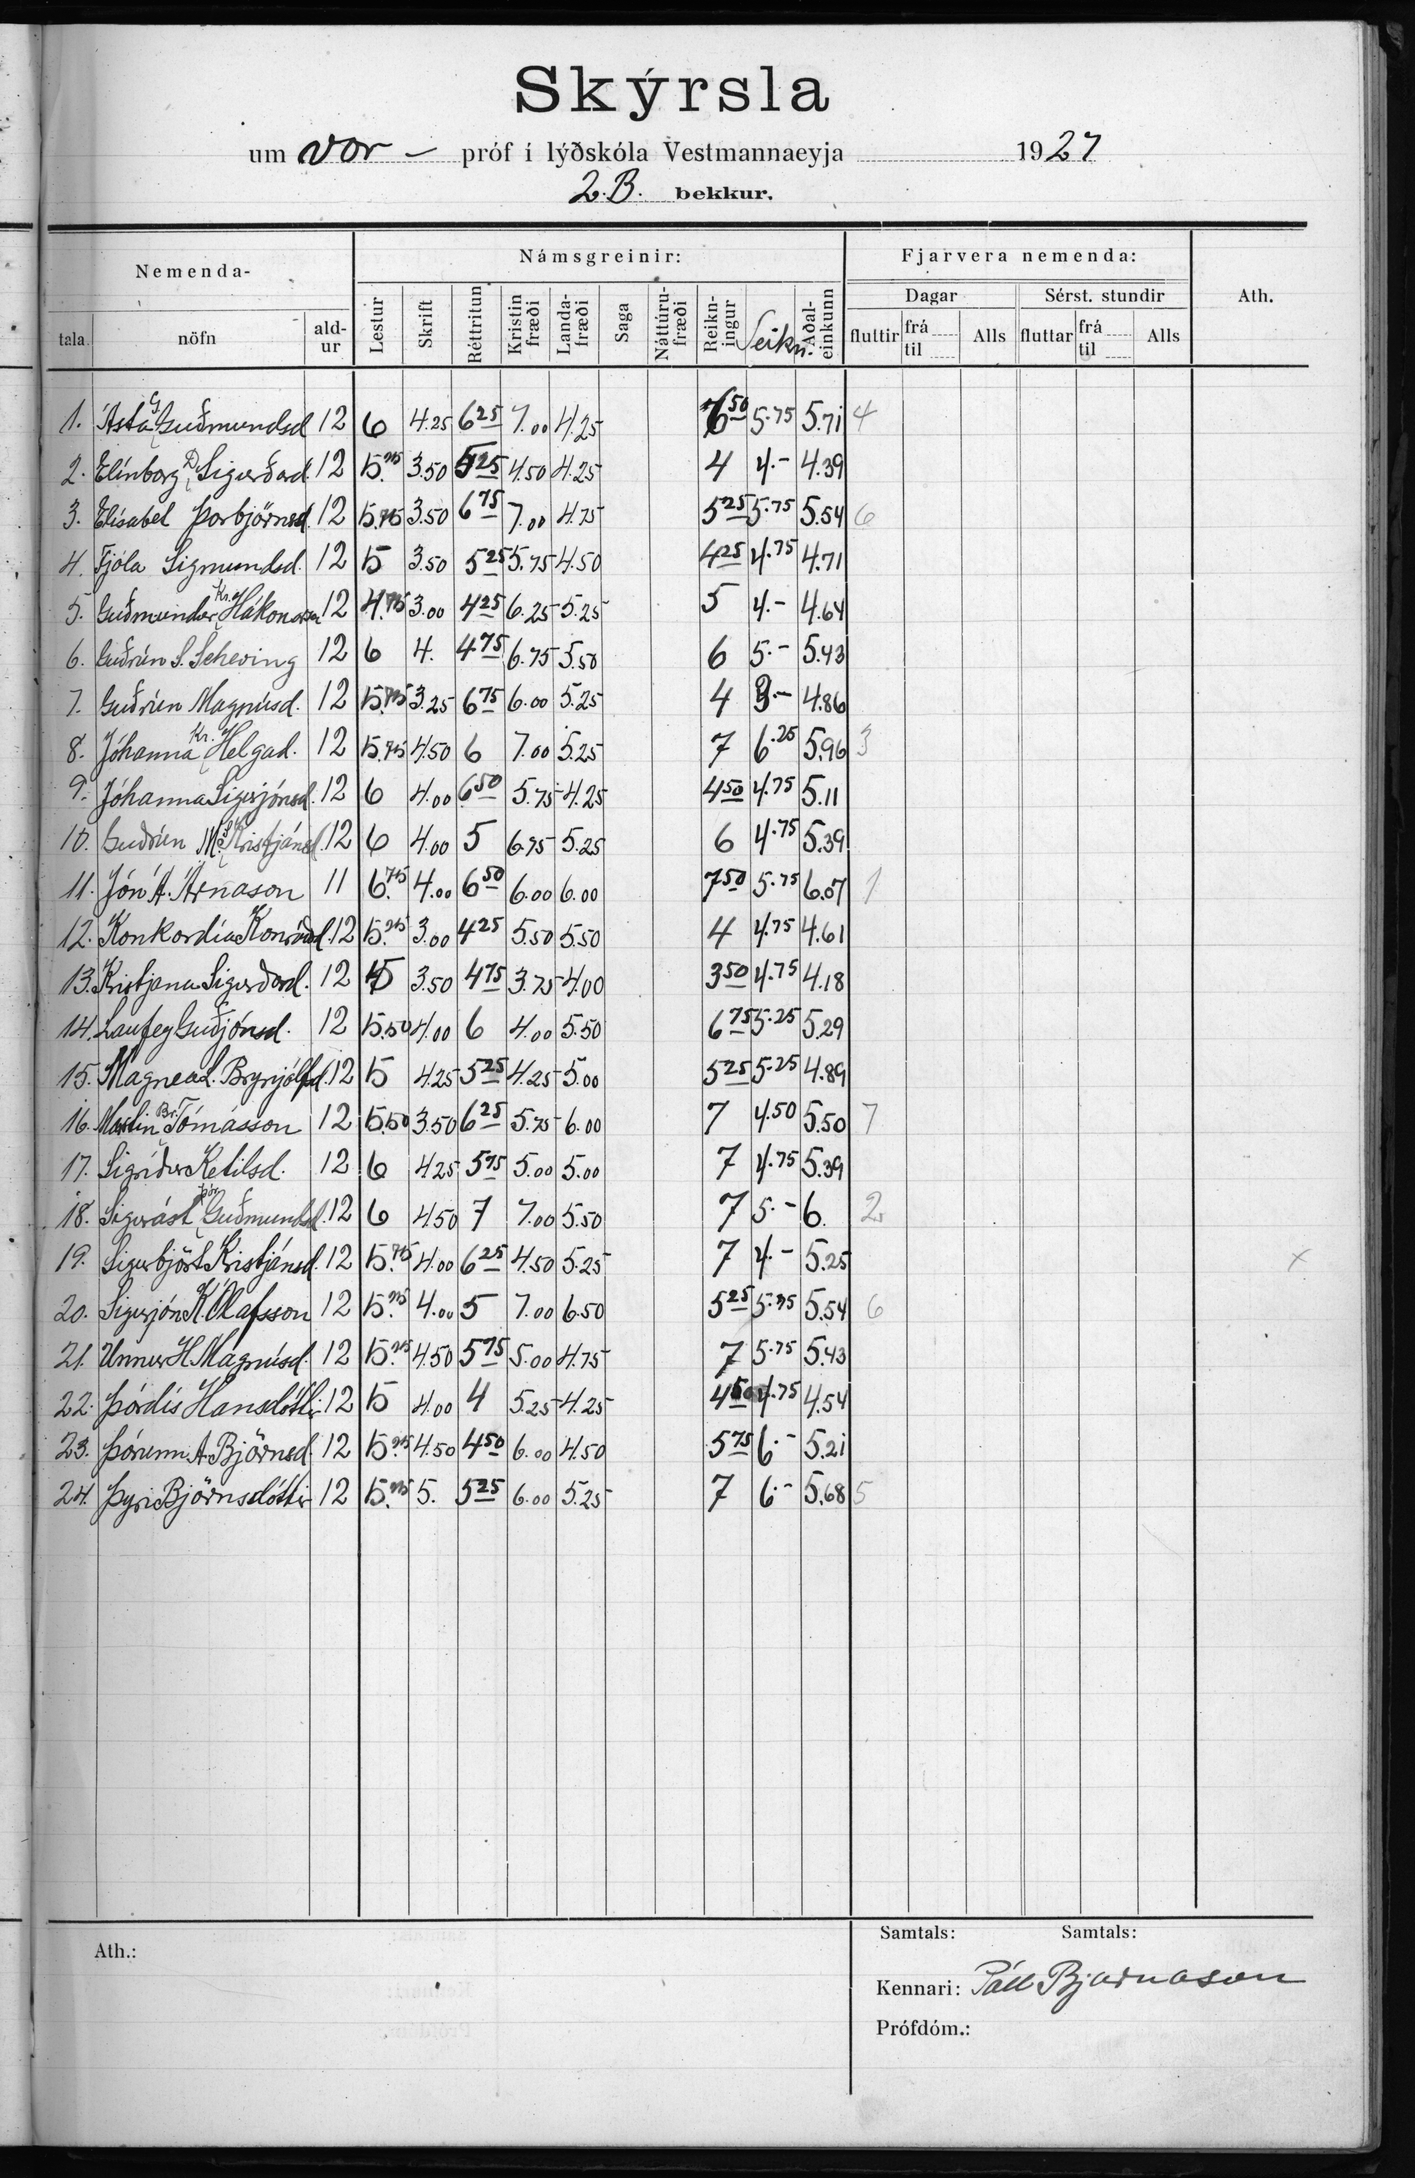 Skýrsla
um vor - próf í lýðskóla Vestmannaeyja 1927
2.B. bekkur.
Nemenda- Námsgreinir: Fjarvera nemenda: Ath.
Dagar Sérst. stundir
tala nöfn ald-ur Lestur Skrift Réttritun Kristin fræði Landa-fræði Saga Náttúru-fræði Reikn-ingur Teikn. Aðal-einkunn fluttir frá til Alls fluttar frá til Alls
1. Ásta G. Guðmundsd 12 6 4.25 6 25 7.00 4.25 6 50 5.75 5.71 4
2. Elínborg D. Sigurðard. 12 5.25 3.50 5 25 4.50 4.25 4 4.- 4.39
3. Elísabet Þorbjörnsd. 12 5.75 3.50 6 75 7.00 4.75 5 25 5.75 5.54 6
4. Fjóla Sigmundsd. 12 5 3.50 5 25 5.75 4.50 4 25 4.75 4.71
5. Guðmundur Kr. Hákonarson 12 4.75 3.00 4 25 6.25 5.25 5 4.- 4.64
6. Guðrún S. Scheving 12 6 4. 4 75 6.75 5.50 6 5.- 5.43
7. Guðrún Magnúsd. 12 5.75 3.25 6 75 6.00 5.25 4 3.- 4.86
8. Jóhanna Kr. Helgad. 12 5.75 4.50 6 7.00 5.25 7 6.25 5.96 3
9. Jóhanna Sigurjónsd. 12 6 4.00 6 50 5.75 4.25 4 50 4.75 5.11
10. Guðrún M. Kristjánsd. 12 6 4.00 5 6.75 5.25 6 4.75 5.39
11. Jón Á. Árnason 11 6.75 4.00 6 50 6.00 6.00 7 50 5.75 6.07 1
12. Konkordía Konráðsd. 12 5.25 3.00 4 25 5.50 5.50 4 4.75 4.61
13. Kristjana Sigurðard. 12 5 3.50 4 75 3.75 4.00 3 50 4.75 4.18
14. Laufey Guðjónsd. 12 5.50 4.00 6 4.00 5.50 6 75 5.25 5.29
15. Magnea L. Brynjólfsd. 12 5 4.25 5 25 4.25 5.00 5 25 5.25 4.89
16. Martin Br. Tómásson 12 5.50 3.50 6 25 5.75 6.00 7 4.50 5.50 7
17. Sigríður Ketilsd. 12 6 4.25 5 75 5.00 5.00 7 4.75 5.39
18. Sigurást Guðmundsd. 12 6 4.50 7 7.00 5.50 7 5.- 6. 2
19. Sigurbjört Kristjánsd. 12 5.75 4.00 6 25 4.50 5.25 7 4.- 5.25 x
20. Sigurjón K. Ólafsson 12 5.25 4.00 5 7.00 6.50 5 25 5.75 5.54 6
21. Unnur H. Magnúsd. 12 5.25 4.50 5 75 5.00 4.75 7 5.75 5.43
22. Þórdís Hansdóttir 12 5 4.00 4 5.25 4.25 4 50 4.75 4.54
23. Þórunn A. Björnsd. 12 5.25 4.50 4 50 6.00 4.50 5 75 6.- 5.21
24. Þyri Björnsdóttir 12 5.25 5. 5 25 6.00 5.25 7 6.- 5.68 5
Samtals: Samtals:
Ath.:
Kennari: Páll Bjarnason
Prófdóm.: